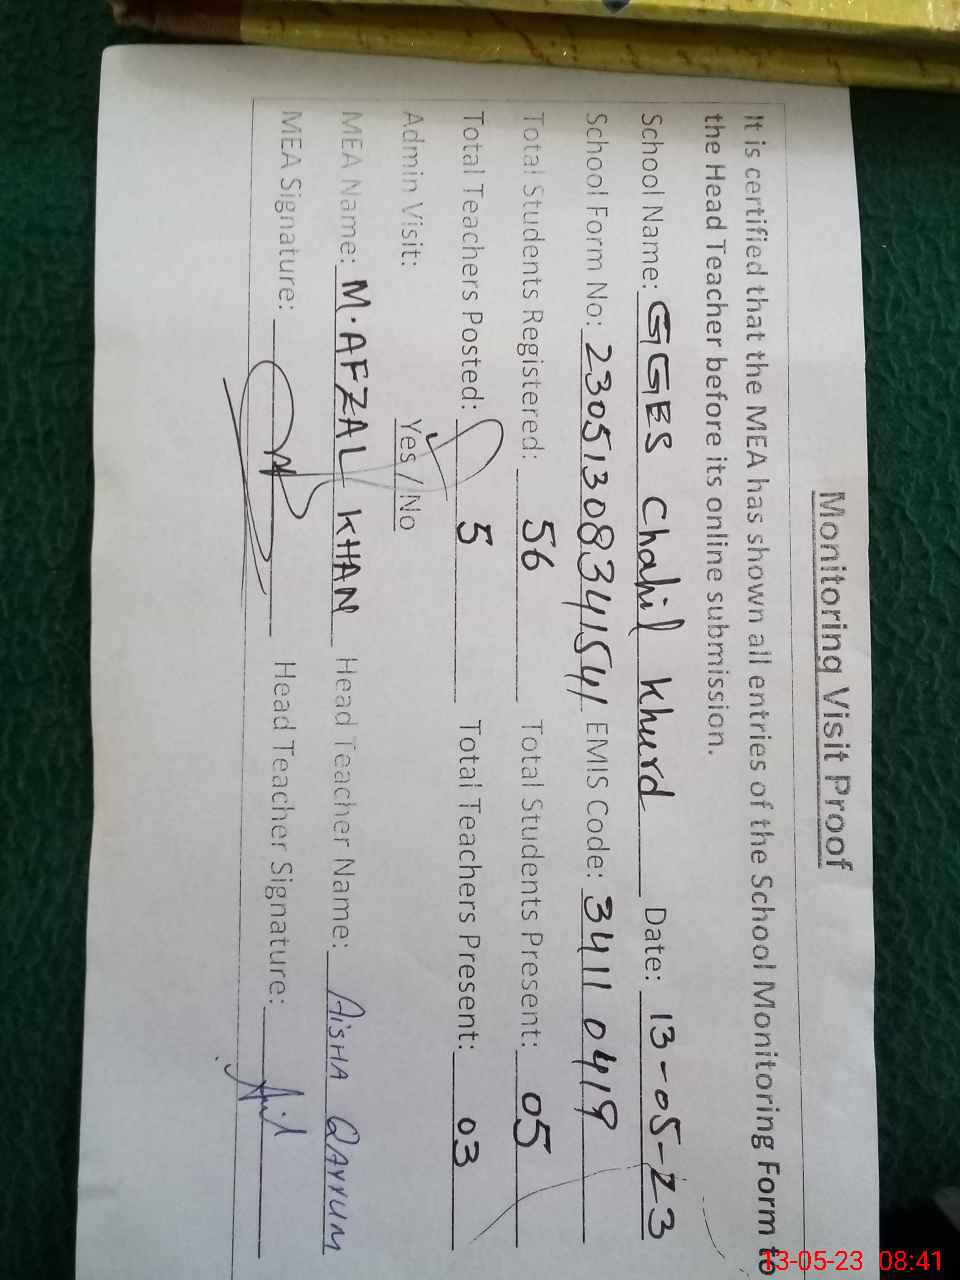 Monitoring Visit Proof
It is certified that the MEA has shown all entries of the School Monitoring Form to
the Head Teacher before its online submission.
School Name: GGES Chahil Khurd Date: 13-05-23
School Form No: 23051308341541 EMIS Code: 34110419
Total Students Registered: 56 Total Students Present: 05
Total Teachers Posted: 5 Total Teachers Present: 03
Admin Visit: Yes / No
MEA Name: M.AFZAL KHAN Head Teacher Name: AisHA QAYYUM
MEA Signature: Head Teacher Signature:
13-05-23 08:41